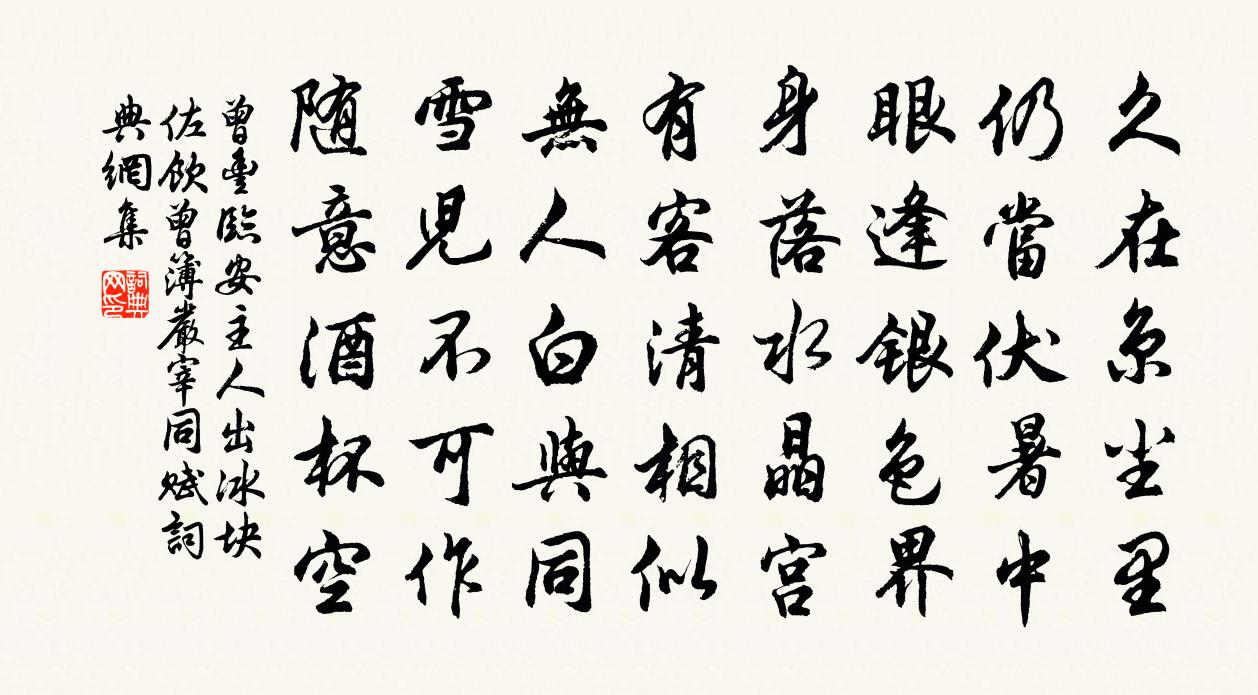 久在京尘里
仍當伏暑中
眼逢銀色界
身落水晶宫
有客清相似
無人白與同
雪児不可作
随意酒杯空
曾豊臨安主人出冰块
佐飲曾簿嚴宰同赋詞
典網集
詞典网印